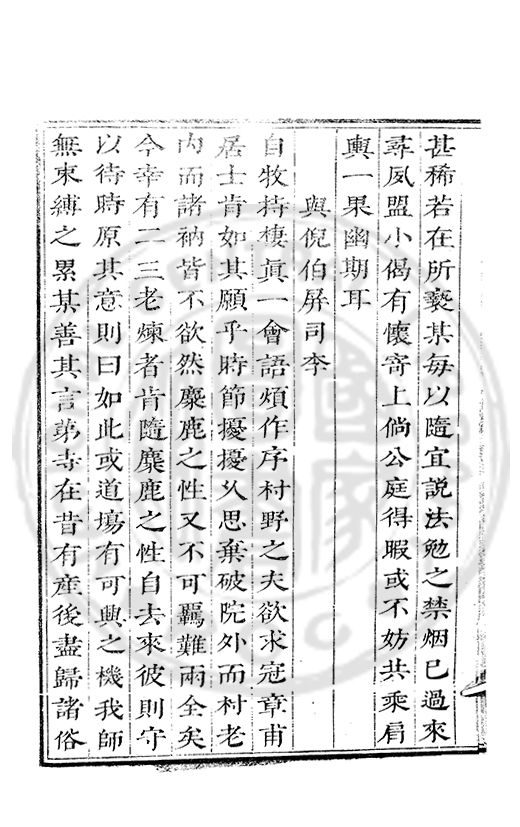 甚稀若在所褻某每以隨宜說法勉之禁烟已過來
尋夙盟小偈有懷寄上倘公庭得暇或不妨共乘肩
輿一果幽期耳
與倪伯屏司李
自牧持棲眞一會語煩作序村野之夫欲求冠章甫
居士肯如其願乎時節擾擾久思棄破院外而村老
內而諸衲皆不欲然麋鹿之性又不可羈難兩全矣
今幸有二三老煉者肯隨麋鹿之性自去來彼則守
以待時原其意則曰如此或道場有可興之機我師
無束縛之累某善其言弟寺在昔有産後盡歸諸俗